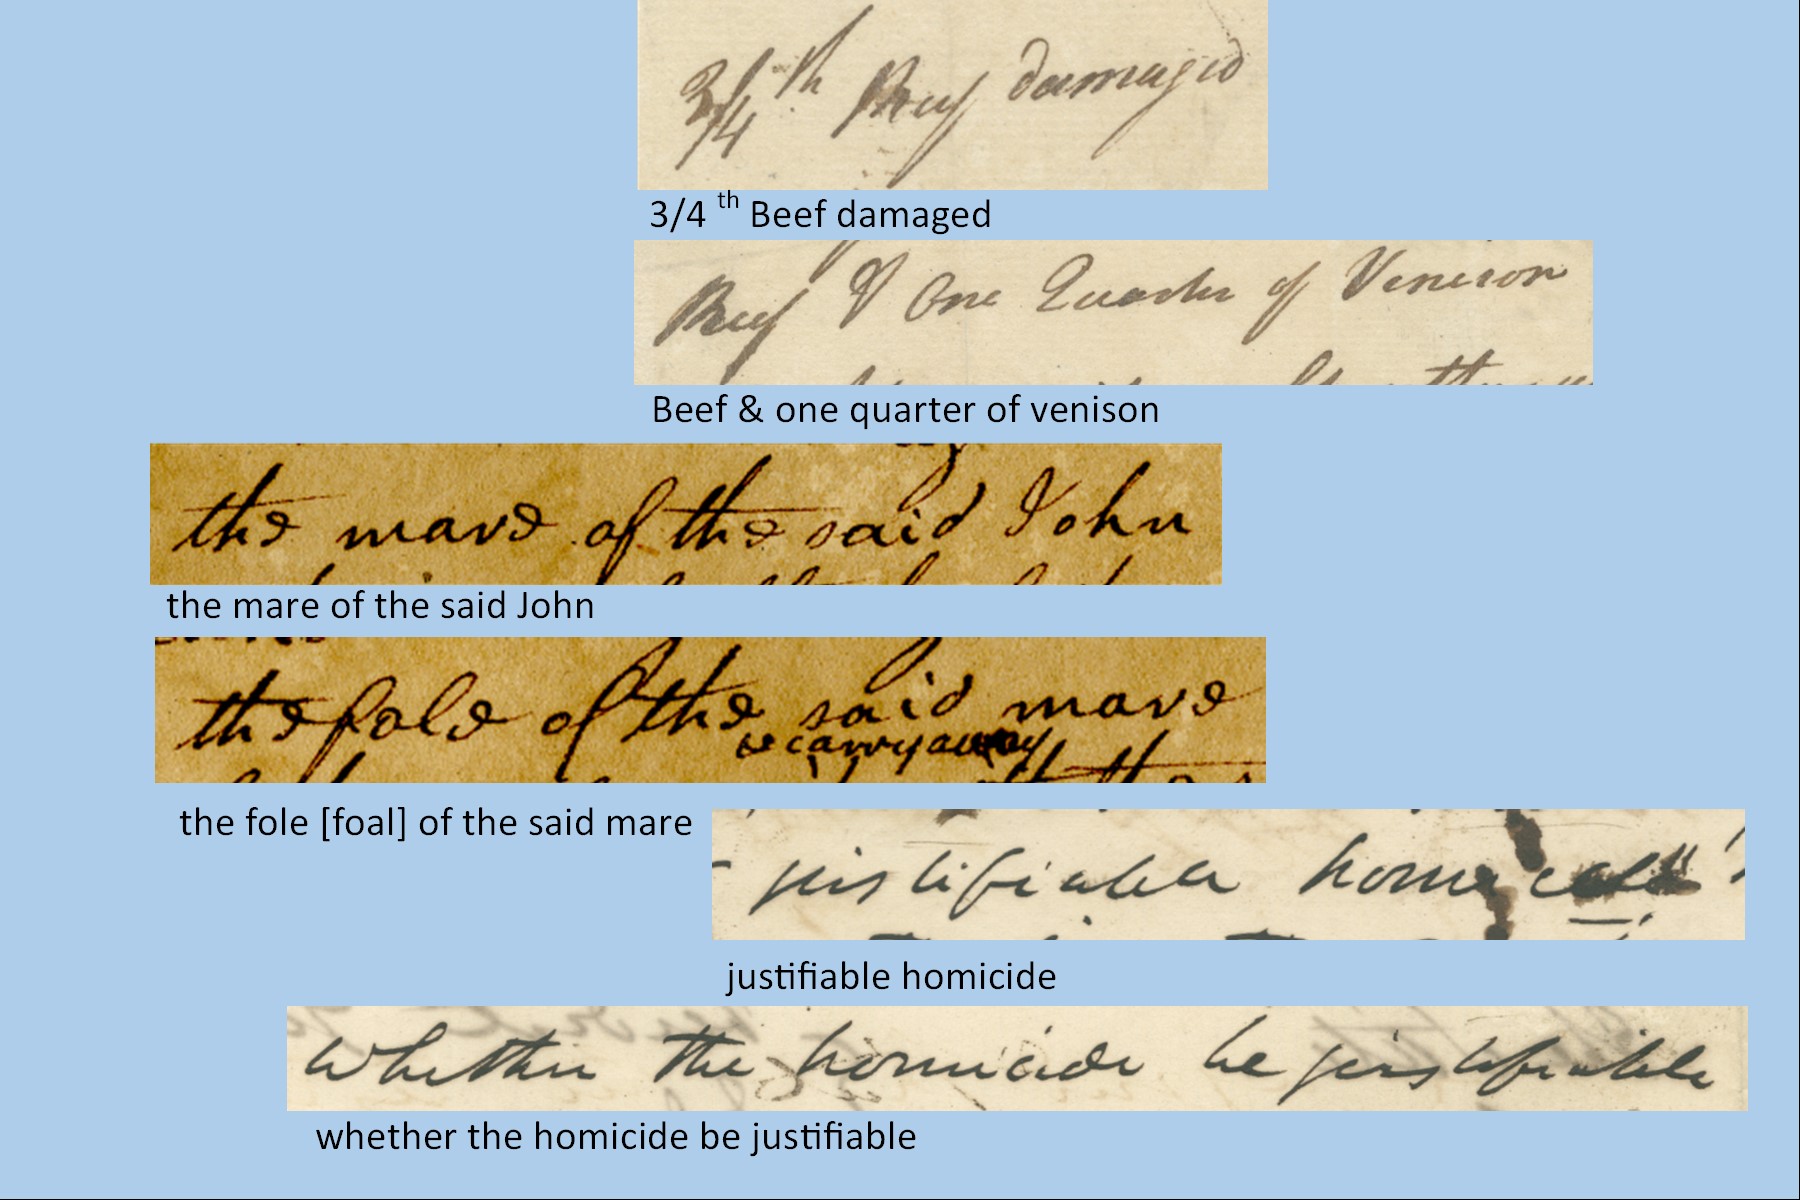 3/4th Beef damaged
3/4 th Beef damaged
Beef & One Quarter of Venison
Beef & one quarter of venison
the mare of the said John
the mare of the said John
the fole of the said mare
& carry away
the fole [foal] of the said mare
justifiable homicide
justifiable homicide
whether the homicide be justifiable
whether the homicide be justifiable